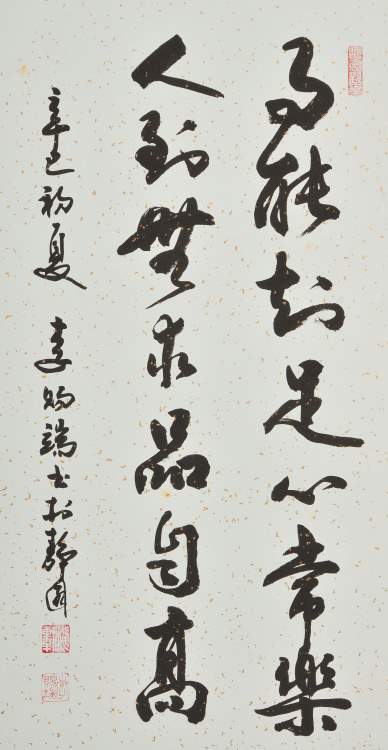 事能知足心常樂
人到無求品自高
辛巳初夏 李賜端書於靜園